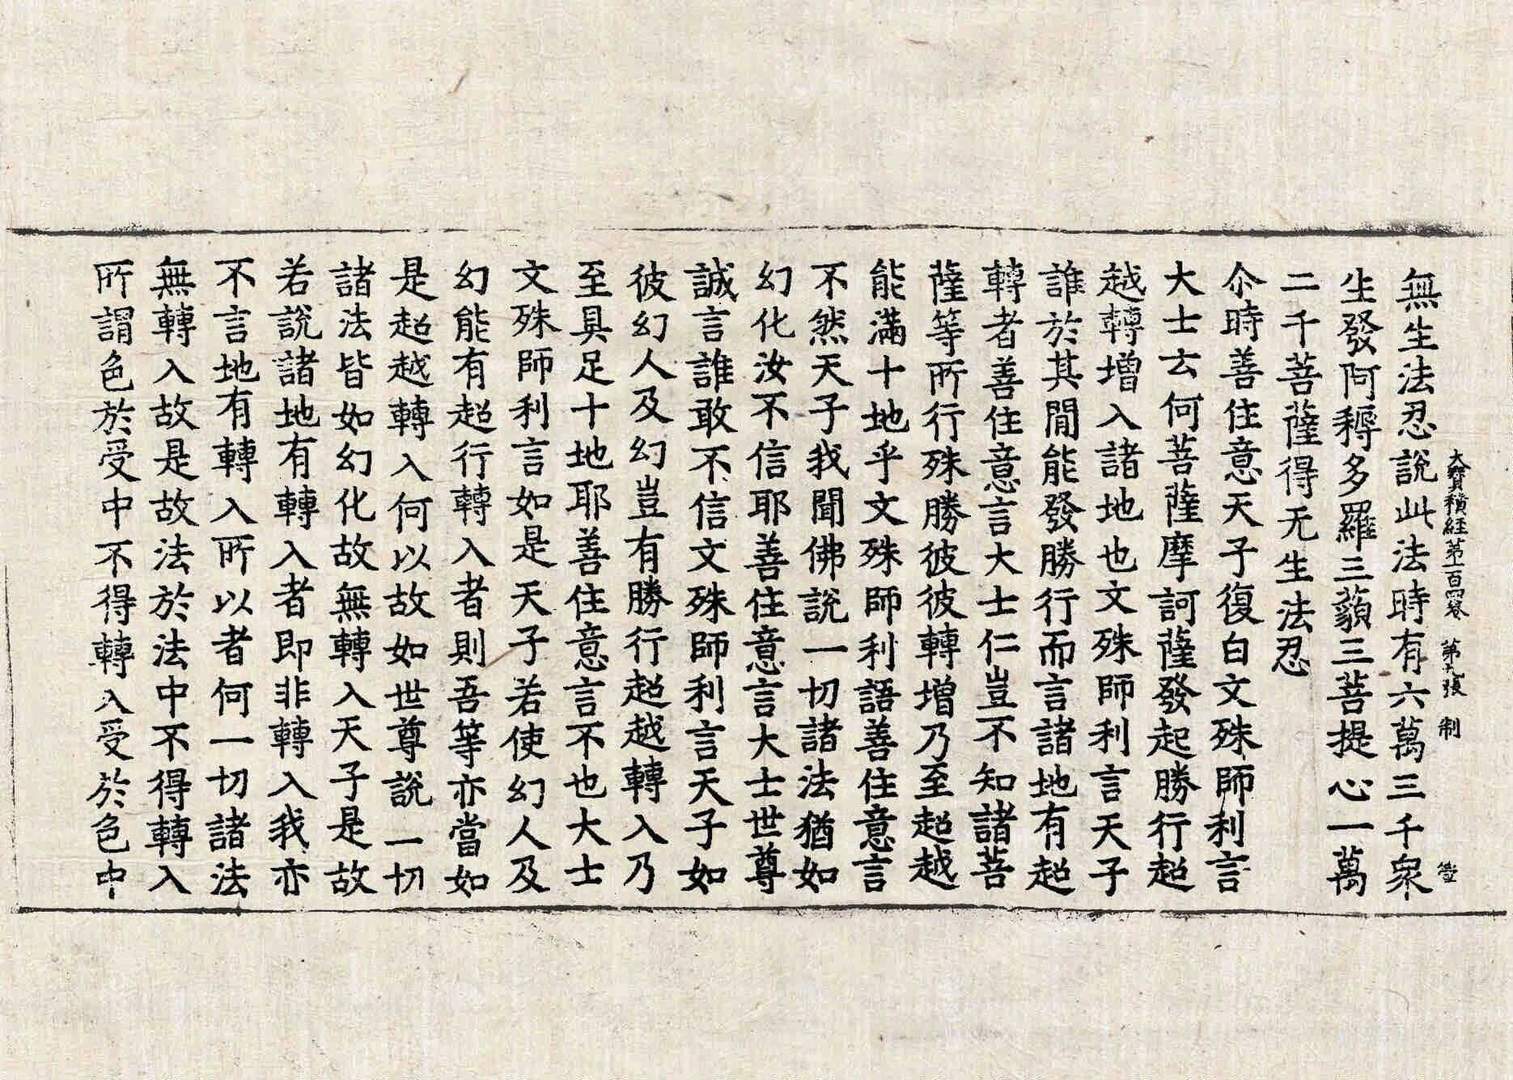 大寶積經第一百四卷 第張 制
無生法忍說此法時有六萬三千衆
生發阿耨多羅三藐三菩提心一萬
二千菩薩得无生法忍
尒時善住意天子復白文殊師利言
大士云何菩薩摩訶薩發起勝行超
越轉增入諸地也文殊師利言天子
誰於其閒能發勝行而言諸地有超
轉者善住意言大士仁豈不知諸菩
薩等所行殊勝彼彼轉增乃至超越
能滿十地乎文殊師利語善住意言
不然天子我聞佛說一切諸法猶如
幻化汝不信耶善住意言大士世尊
誠言誰敢不信文殊師利言天子如
彼幻人及幻豈有勝行超越轉入乃
至具足十地耶善住意言不也大士
文殊師利言如是天子若使幻人及
幻能有超行轉入者則吾等亦當如
是超越轉入何以故如世尊說一切
諸法皆如幻化故無轉入天子是故
若說諸地有轉入者即非轉入我亦
不言地有轉入所以者何一切諸法
無轉入故是故法於法中不得轉入
所謂色於受中不得轉入受於色中